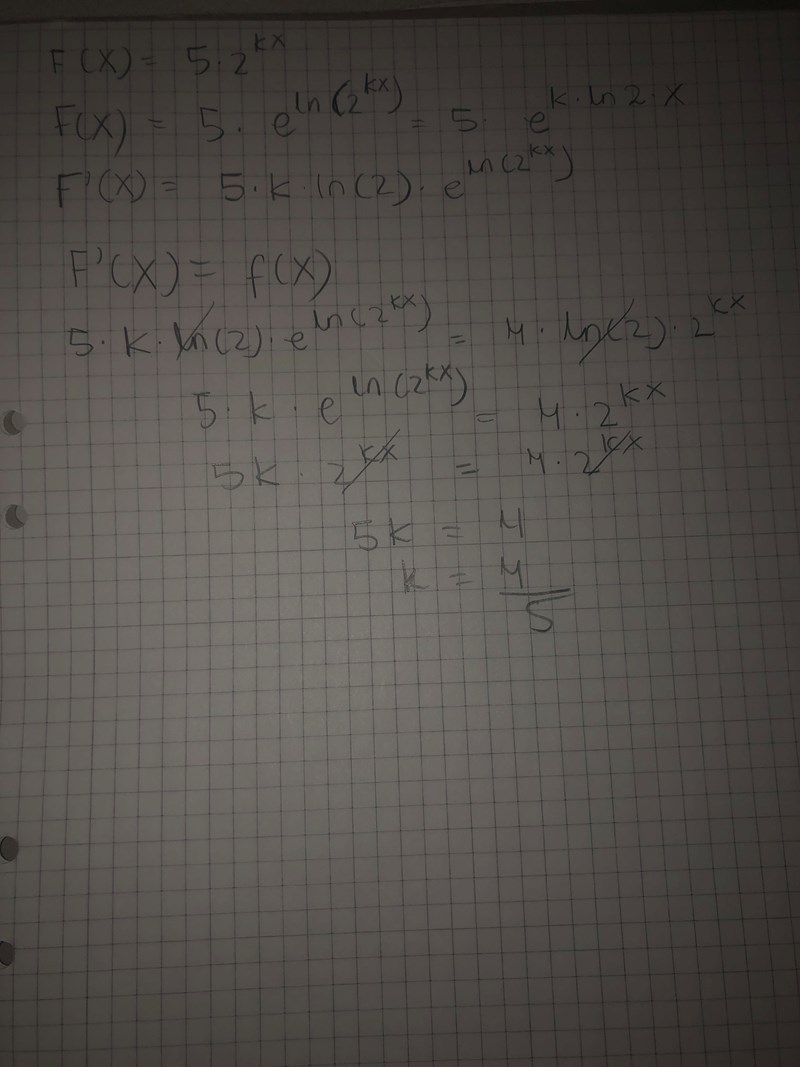 F(X) = 5·2^kx
F(X) = 5· e^ln(2^kx) = 5· e^k·ln2·x
F'(X) = 5·k·ln(2)· e^ln(2^kx)
F'(X) = f(X)
5·k·ln(2)·e^ln(2^kx) = 4·ln(2)·2^kx
5·k·e^ln(2^kx) = 4·2^kx
5k·2^kx = 4·2^kx
5k = 4
k = 4/5